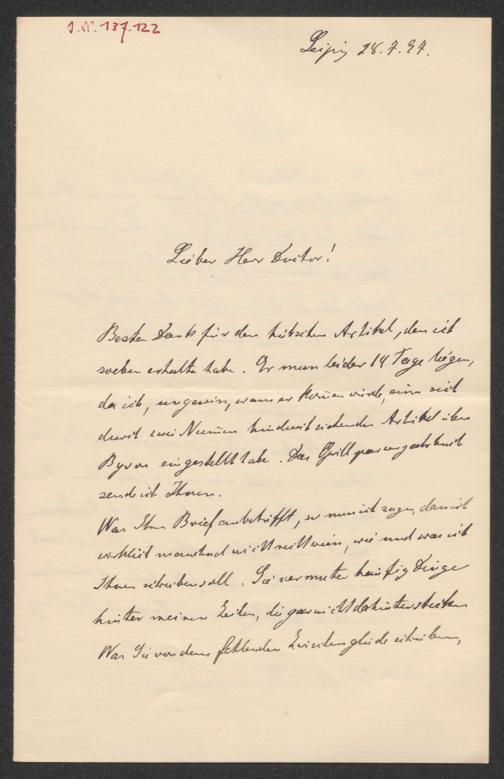 J.N. 137.122
Leipzig 28.7.97.
Lieber Herr Doctor!
Besten Dank für den hübschen Artikel, den ich
soeben erhalten habe. Er muss leider 14 Tage liegen,
da ich, ungewiss, wann er kommen würde, einen sich
durch zwei Nummern hindurch ziehenden Artikel über
Byron eingestellt habe. Das Grillparzerjahrbuch
sende ich Ihnen.
Was Ihren Brief anbetrifft, so muss ich sagen, dass ich
wirklich manchmal nicht recht weiss, wie und was ich
Ihnen schreiben soll. Sie vermuten häufig Dinge
hinter meinen Zeilen, die gar nicht dahinterstecken.
Was Sie von dem fehlenden Zwischengliede schreiben,